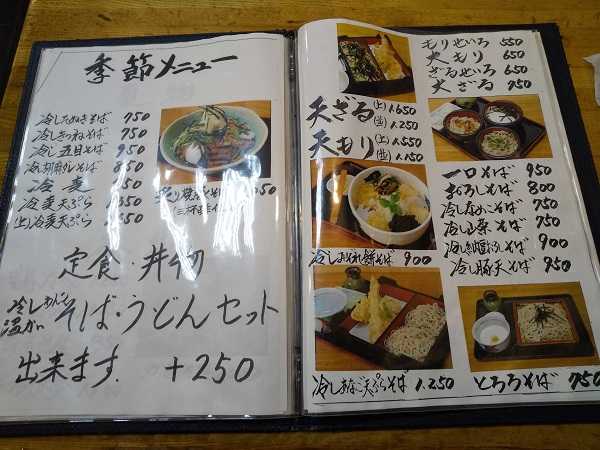 季節メニュー
冷したぬきそば 750
冷しきつねそば 750
冷し五目そば 950
冷し胡麻ダレそば 850
冷麦
冷麦天ぷら
(上)冷麦天ぷら
定食・丼物
冷し
温かい そば・うどんセット
出来ます. +250
もりせいろ 550
大もり 650
ざるせいろ 650
大ざる 750
天ざる (上) 1.650
(並) 1.250
天もり (上) 1.550
(並) 1.150
一口そば 950
おろしそば 800
冷しなめこそば 750
冷し山菜そば 750
900
冷し豚天そば 950
冷しみぞれ餅そば 900
冷しあなご天ぷらそば 1.250
とろろそば 750